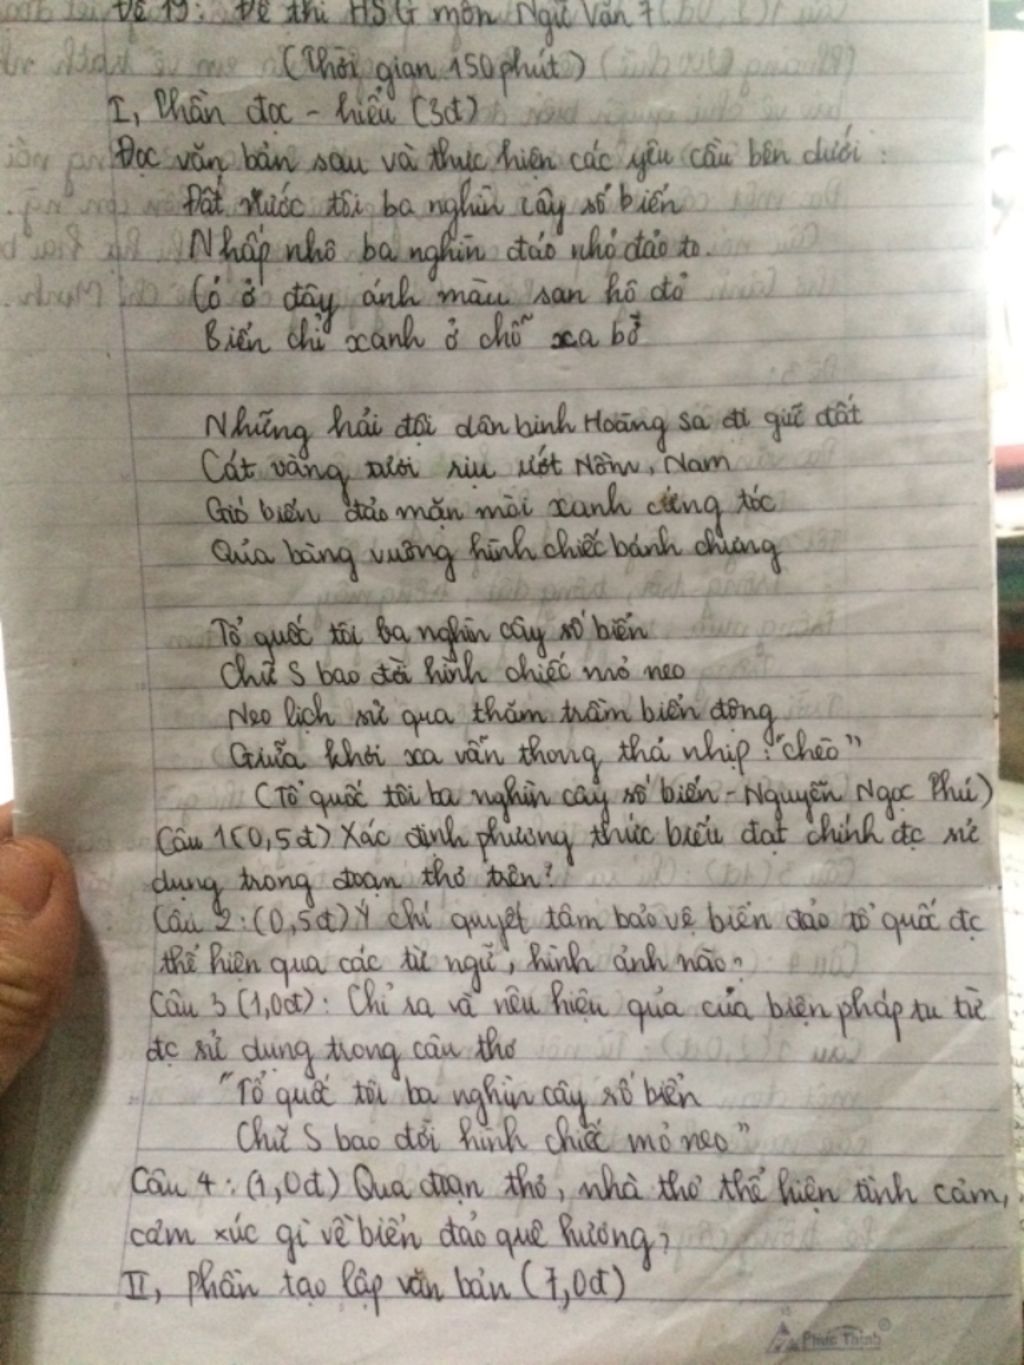 Đề 19: Đề thi HSG môn Ngữ Văn 7
(Thời gian 150 phút)
I, Phần đọc - hiểu (3đ)
Đọc văn bản sau và thực hiện các yêu cầu bên dưới:
Đất nước tôi ba nghìn cây số biển
Nhấp nhô ba nghìn đảo nhỏ đảo to.
Có ở đây ánh màu san hô đỏ
Biển chỉ xanh ở chỗ xa bờ
Những hải đội dân binh Hoàng Sa đi giữ đất
Cát vàng rười rịu ướt Nồm, Nam
Gió biển đảo mặn mòi xanh cứng tóc
Qủa bàng vuông hình chiếc bánh chưng
Tổ quốc tôi ba nghìn cây số biển
Chữ S bao đời hình chiếc mỏ neo
Neo lịch sử qua thăm trầm biển động
Giữa khơi xa vẫn thong thả nhịp: "chèo"
(Tổ quốc tôi ba nghìn cây số biển - Nguyễn Ngọc Phú)
Câu 1(0,5đ) Xác định phương thức biểu đạt chính đc sử
dụng trong đoạn thơ trên?
Câu 2: (0,5đ) Ý chí quyết tâm bảo vệ biển đảo tổ quốc đc
thể hiện qua các từ ngữ, hình ảnh nào?
Câu 3 (1,0đ): Chỉ ra và nêu hiệu qủa của biện pháp tu từ
đc sử dụng trong câu thơ
"Tổ quốc tôi ba nghìn cây số biển
Chữ S bao đời hình chiếc mỏ neo"
Câu 4: (1,0đ) Qua đoạn thơ, nhà thơ thể hiện tình cảm,
cảm xúc gì về biển đảo quê hương?
II, Phần tạo lập văn bản (7,0đ)
Phúc Thịnh